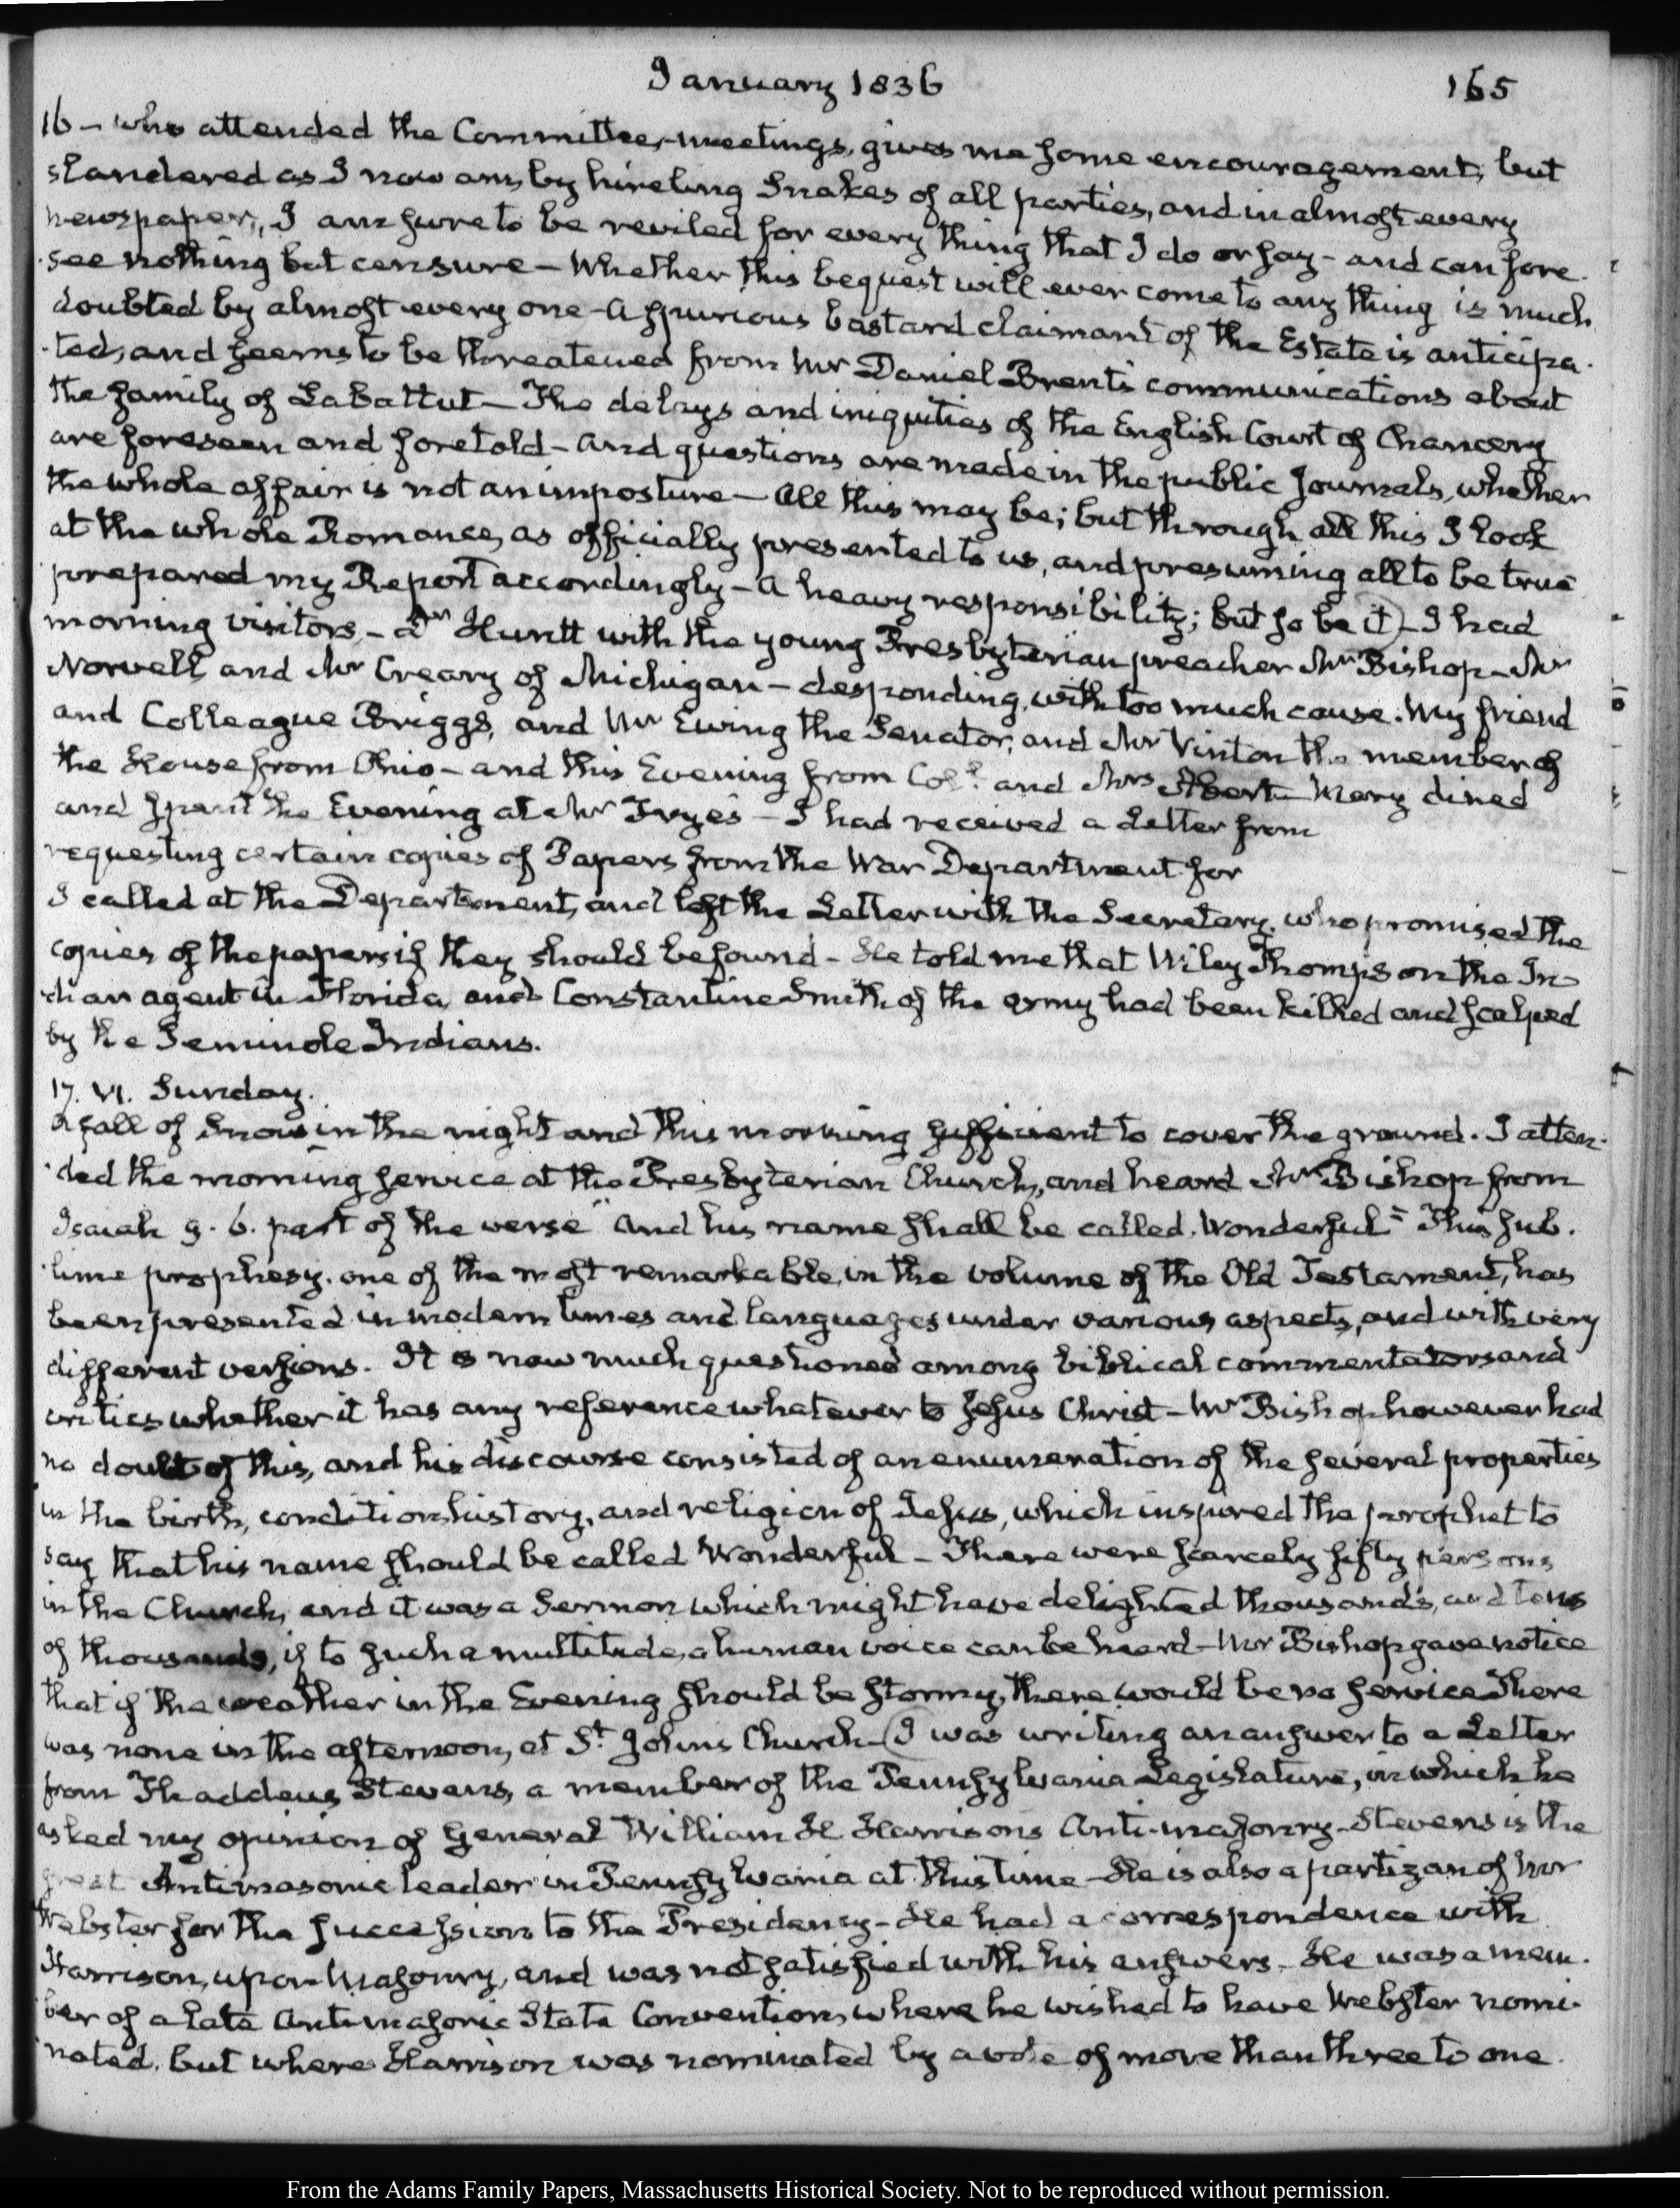 January 1836
165
16 – who attended the Committee-meetings, gives me some encouragement; but
slandered as I now am, by hireling Snakes of all parties, and in almost every
newspaper, I am sure to be reviled for every thing that I do or say – and can fore-
-see nothing but censure – Whether this bequest will ever come to any thing is much
doubted by almost every one – A spurious bastard claimant of the Estate is anticipa-
-ted, and seems to be threatened from Mr Daniel Brent's communications about
the family of LaBattut – The delays and iniquities of the English Court of Chancery
are foreseen and foretold – and questions are made in the public Journals, whether
the whole affair is not an imposture – All this may be; but through all this I look
at the whole Romance, as officially presented to us, and presuming all to be true
prepared my Report accordingly – A heavy responsibility; but so be it – I had
morning visitors, – Dr Huntt with the young Presbyterian preacher Mr Bishop – Mr
Norvell and Mr Creary of Michigan – desponding, with too much cause. My friend
and Colleague Briggs, and Mr Ewing the Senator, and Mr Vinton the member of
the House from Ohio – and this Evening from Coll. and Mrs Abert – Mary dined
and spent the Evening at Mr Frye's – I had received a Letter from
requesting certain copies of Papers from the War Department for
I called at the Department, and left the Letter with the Secretary, who promised the
copies of the papers if they should be found – He told me that Wiley Thompson the In-
-dian agent in Florida, and Constantine Smith of the army had been killed and scalped
by the Seminole Indians.
17. VI. Sunday.
A fall of Snow in the night and this morning sufficient to cover the ground. I atten-
-ded the morning service at the Presbyterian Church, and heard Mr Bishop from
Isaiah 9. 6. part of the verse "And his name shall be called, Wonderful" This sub-
-lime prophesy, one of the most remarkable, in the volume of the Old Testament, has
been presented in modern times and languages under various aspects, and with very
different versions. It is now much questioned among biblical commentators and
critics whether it has any reference whatever to Jesus Christ – Mr Bishop however had
no doubt of this, and his discourse consisted of an enumeration of the several properties
in the birth, condition, history, and religion of Jesus, which inspired the prophet to
say that his name should be called Wonderful – There were scarcely fifty persons
in the Church, and it was a Sermon which might have delighted thousands, and tens
of thousands, if to such a multitude, a human voice can be heard – Mr Bishop gave notice
that if the weather in the Evening should be stormy, there would be no service There
was none in the afternoon, at St. John's Church – I was writing an answer to a Letter
from Thaddeus Stevens, a member of the Pennsylvania Legislature, in which he
asked my opinion of General William H Harrison's Anti-masonry – Stevens is the
great Antimasonic leader in Pennsylvania at this time – He is also a partizan of Mr
Webster for the succession to the Presidency – He had a correspondence with
Harrison, upon Masonry, and was not satisfied with his answers – He was a mem-
-ber of a late Anti-masonic State Convention, where he wished to have Webster nomi-
-nated, but where Harrison was nominated by a vote of more than three to one.
From the Adams Family Papers, Massachusetts Historical Society. Not to be reproduced without permission.